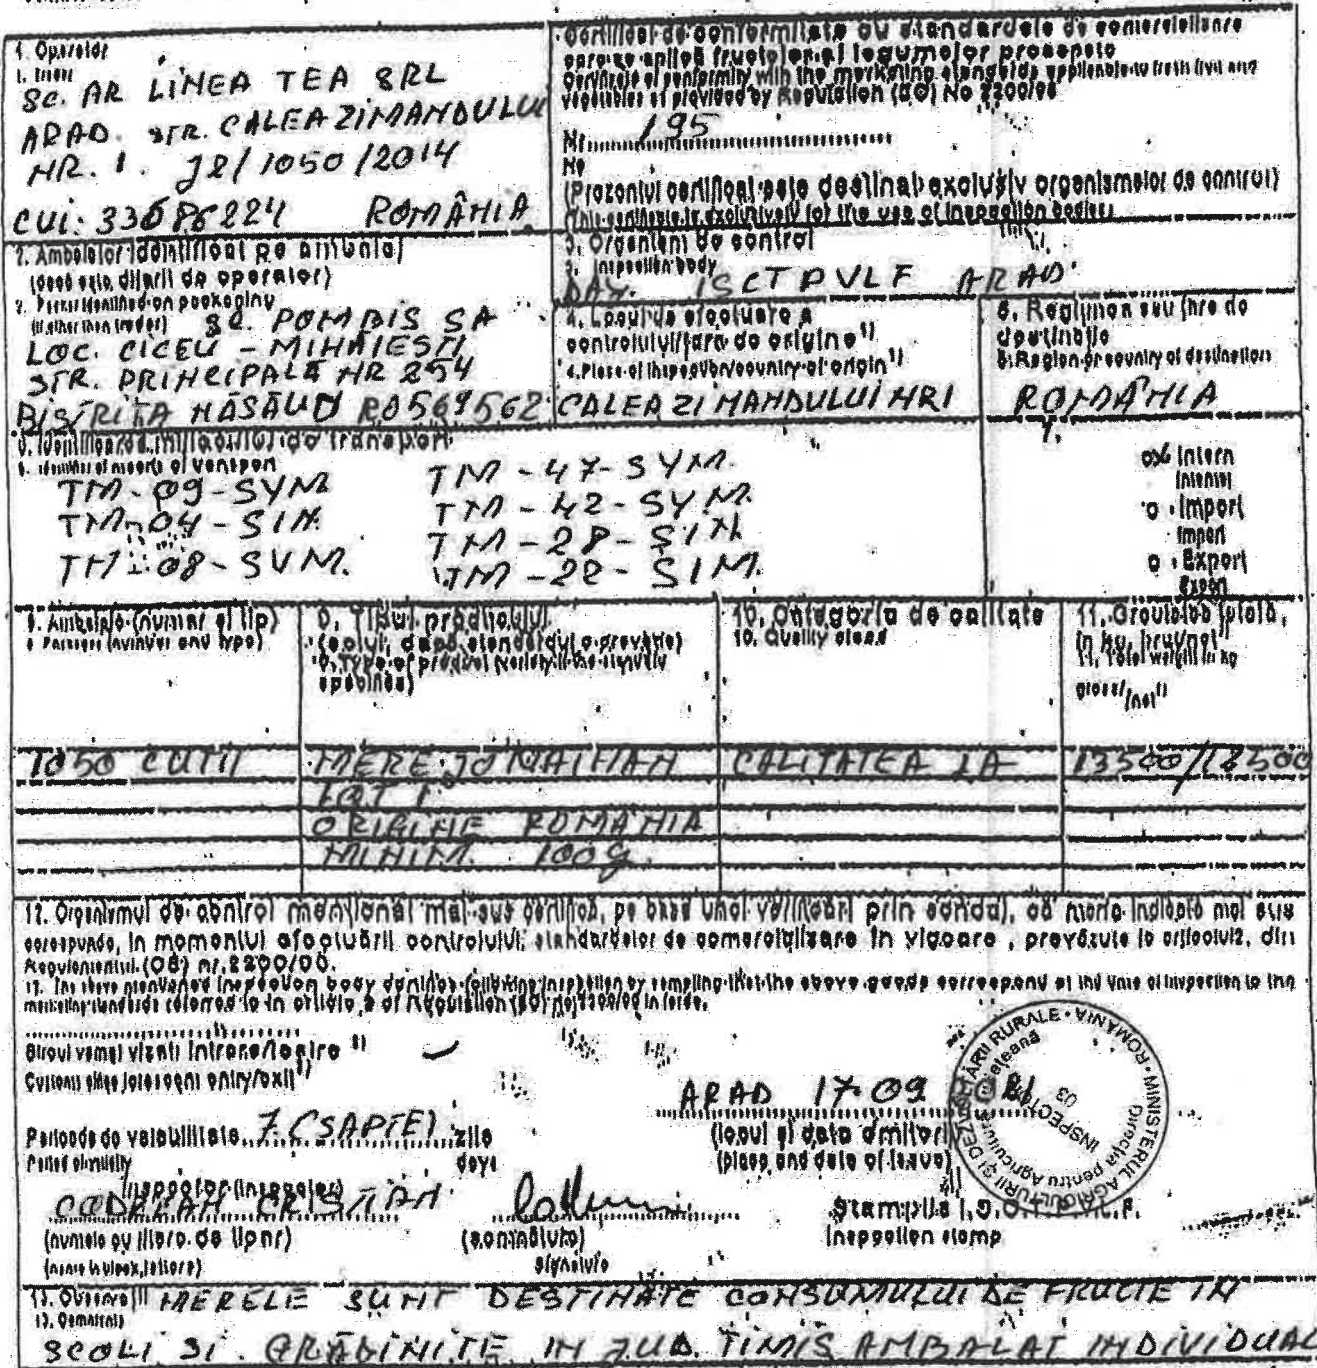 1. Operator
SC. AR LINEA TEA SRL
ARAD. STR. CALEA ZIMANDULUI
NR. 1. J2/1050/2014
CUI: 33686224 ROMÂNIA
Certificat de conformitate cu standardele de comercializare
care se aplică fructelor și legumelor proaspete
Certificate of conformity with the marketing standards applicable to fresh fruit and
vegetables as provided by Regulation (EC) No 2200/96
Nr. 195
No
(Prezentul certificat este destinat exclusiv organismelor de control)
(This certificate is exclusively for the use of inspection bodies)
2. Ambalator identificat pe ambalaj
(dacă este diferit de operator)
2. Packer identified on packaging
(if other than trader) SC. POMBIS SA
LOC. CICEU - MIHAIESTI
STR. PRINCIPALA NR 254
BISTRITA NĂSĂUD RO569562
3. Organism de control
3. Inspection body
ISCTPVLF ARAD
4. Locul de efectuare a
controlului/țara de origine 1)
4. Place of inspection/country of origin 1)
CALEA ZIMANDULUI NR1
5. Regiunea sau țara de
destinație
5. Region or country of destination
ROMÂNIA
6. Identificarea mijlocului de transport
6. Identifier of means of transport
TM-09-SYM TM-47-SYM.
TM-04-SIM. TM-42-SYM.
TM-08-SVM. TM-28-SIM
TM-22-SIM.
7.
Intern
Internal
o Import
Import
o Export
Export
8. Ambalaje (număr și tip)
8. Packages (number and type)
9. Tipul produsului
(soiul, dacă standardul o prevede)
9. Type of product (variety if the standard
specifies)
10. Categoria de calitate
10. Quality class
11. Greutatea totală,
în kg, brut/net 1)
11. Total weight in kg
gross/net 1)
1050 CUTII MERE JONATHAN CALITATEA IA 13500/12500
LOT 1
ORIGINE ROMÂNIA
MINIM. 100g.
12. Organismul de control menționat mai sus certifică, pe baza unei verificări prin sondaj, că marfa indicată mai sus
corespunde, în momentul efectuării controlului, standardelor de comercializare în vigoare, prevăzute la articolul 2, din
Regulamentul (CE) nr. 2200/96.
12. The above mentioned inspection body certifies following inspection by sampling that the above goods correspond at the time of inspection to the
marketing standards referred to in article 2 of Regulation (EC) no 2200/96 in force.
Biroul vamal vizat: intrare/ieșire 1)
Customs office foreseen: entry/exit 1)
Perioada de valabilitate 7 (SAPTE) zile
Period of validity days
ARAD 17.09
(locul și data emiterii)
(place and date of issue)
Inspector (Inspector)
CODREAN CRISTIAN
(numele cu litere de tipar)
(name in block letters)
(semnătura)
signature
Ștampila I.S.C.T.P.V.L.F.
Inspection stamp
MINISTERUL AGRICULTURII ȘI DEZVOLTĂRII RURALE • ROMÂNIA
Direcția pentru Agricultură Județeană
INSPECTOR
03
13. Observații MERELE SUNT DESTINATE CONSUMULUI DE FRUCTE IN
13. Comments
SCOLI SI GRĂDINITE IN JUD. TIMIS AMBALAT INDIVIDUAL